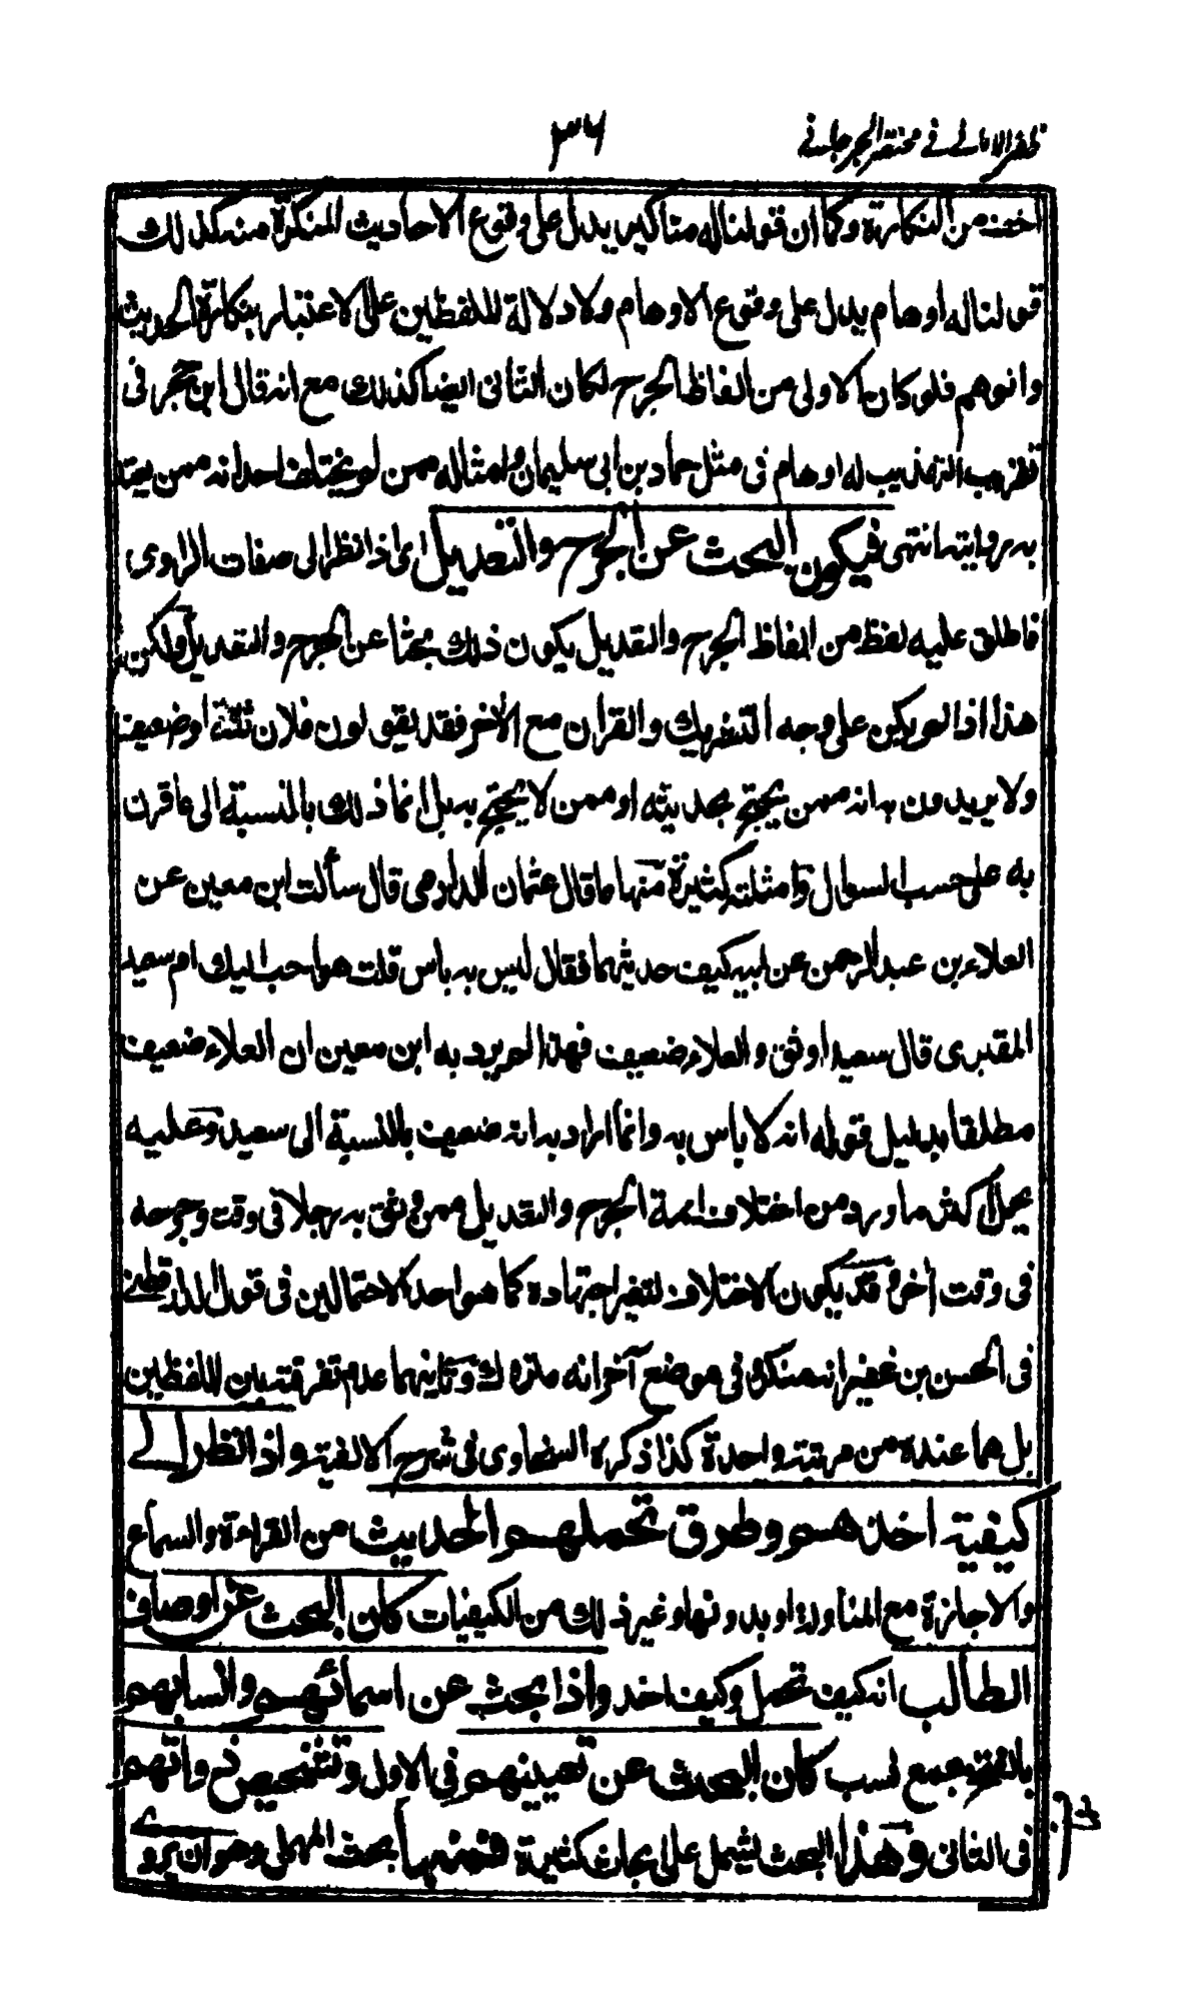 ظفر الامانے فے مختصر الجرجانے
٣٦
اخف من النكارة وكما ان قولنا له مناكير يدل على وقوع الاحاديث المنكرة منه كذلك
قولنا له اوهام يدل على وقوع الاوهام ولا دلالة للفظين على الاعتبار بنكارة الحديث
وانوهم فلو كان الاولى من الفاظ الجرح لكان الثانى ايضا كذلك مع انه قال ابن حجر فى
تقريب التهذيب له اوهام فى مثل حماد بن ابى سليمان وامثاله ممن لم يختلف احد انه ممن يعتد
به بروايته انتهى فيكون البحث عن الجرح والتعديل اى اذا نظر الى صفات الراوى
فاطلق عليه لفظ من الفاظ الجرح والتعديل يكون ذلك بحثا عن الجرح والتعديل ولكن
هذا اذا لم يكن على وجه التشريك والقران مع الآخر فقد يقولون فلان ثقة او ضعيف
ولا يريدون به انه ممن يحتج بحديثه او ممن لا يحتج به بل انما ذلك بالنسبة الى ما قرن
به على حسب السوال وامثلته كثيرة منها ما قال عثمان الدارمى قال سألت ابن معين عن
العلاء بن عبد الرحمن عن ابيه كيف حديثهما فقال ليس به باس قلت هو احب اليك ام سعيد
المقبرى قال سعيد اوثق والعلاء ضعيف فهذا لم يرد به ابن معين ان العلاء ضعيف
مطلقا بدليل قوله انه لا باس به وانما اراد به انه ضعيف بالنسبة الى سعيد وعليه
يحمل اكثر ما ورد من اختلاف ائمة الجرح والتعديل ممن وثق به رجلا فى وقت وجرحه
فى وقت آخر وقد يكون الاختلاف لتغير اجتهاده كما هو احد الاحتمالين فى قول الدارقطنے
فى الحسن بن غفير انه منكر وفى موضع آخر انه متروك وثانيهما عدم تفرقته بين اللفظين
بل هما عنده من مرتبة واحدة كذا ذكره السخاوى فى شرح الالفية واذا نظر الے
كيفية اخذهم وطرق تحملهم الحديث من القراءة والسماع
والاجازة مع المناولة او بدونها وغير ذلك من الكيفيات كان البحث عن اوصاف
الطالب انه كيف تحمل وكيف اخذ واذا بحث عن اسمائهم وانسابهم
بالفتح جمع نسب كان البحث عن تعيينهم فى الاول وتشخيص ذواتهم
فى الثانى وهذا البحث يشمل على ابحاث كثيرة فمنها بحث المهمل وهو ان يروے